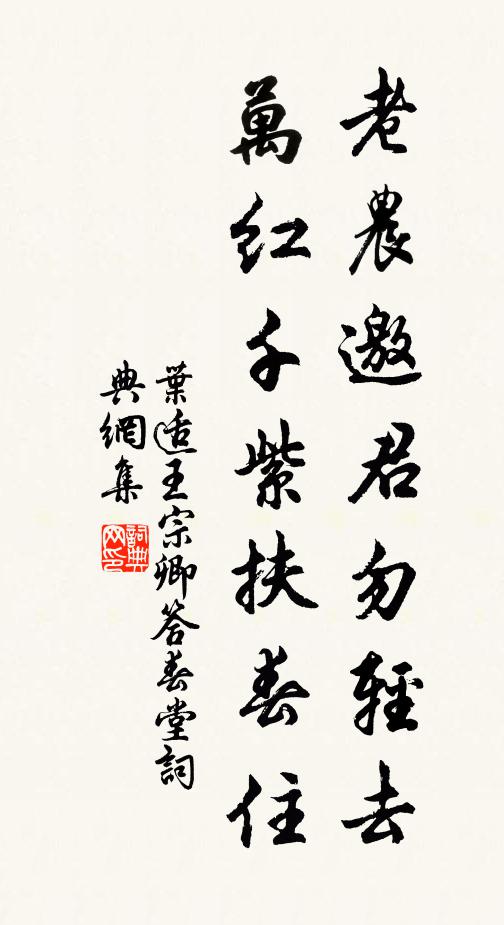 老農邀君勿輕去
萬紅千紫扶春住
葉適王宗卿答春堂詞
典網集
詞典
网印